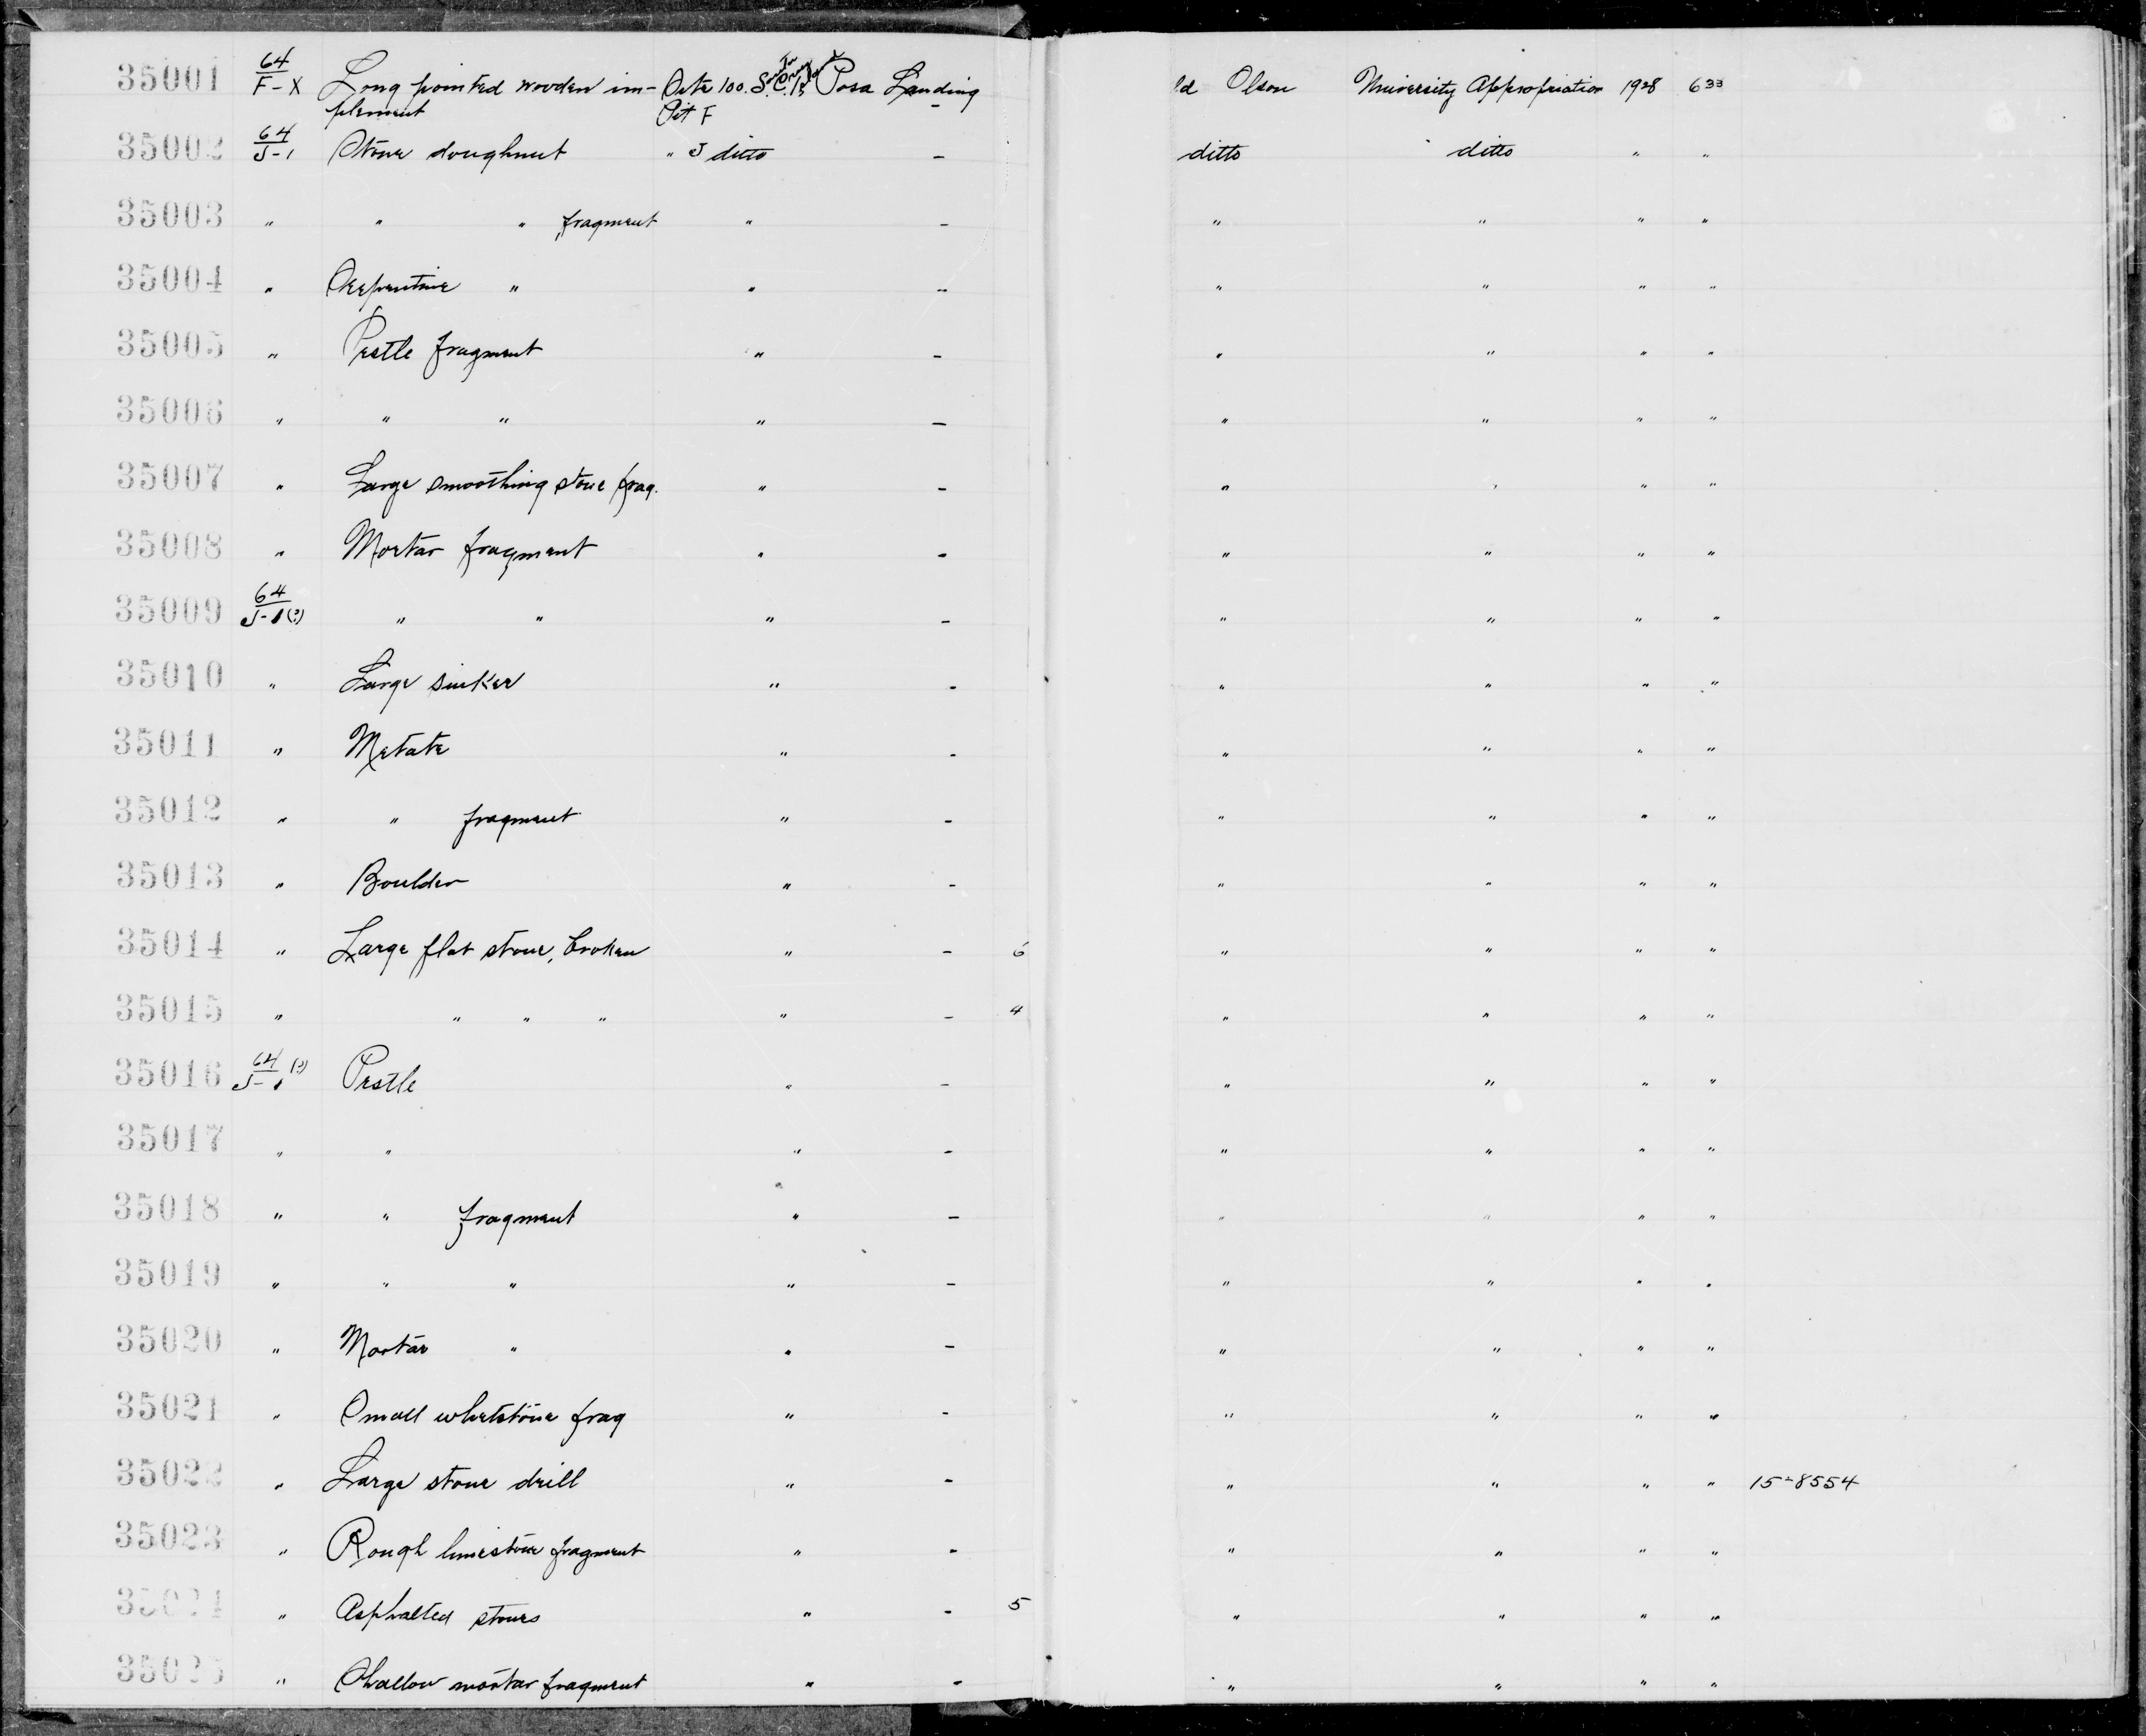 35001 64/F-X Long pointed wooden im- Site 100. S.C.I. Posa Landing ld Olson University Appropriation 1928 633
plement Pit F -
35002 64/J-1 Stone doughnut " J ditto - ditto ditto " "
35003 " " " fragment " - " " " "
35004 " Serpentine " " - " " " "
35005 " Pestle fragment " - " " " "
35006 " " " " - " " " "
35007 " Large smoothing stone frag. " - " " " "
35008 " Mortar fragment " - " " " "
35009 64/J-1(?) " " " - " " " "
35010 " Large sinker " - " " " "
35011 " Metate " - " " " "
35012 " " fragment " - " " " "
35013 " Boulder " - " " " "
35014 " Large flat stone, broken " - 6 " " " "
35015 " " " " " - 4 " " " "
35016 64/J-1 (?) Pestle " - " " " "
35017 " " " - " " " "
35018 " " fragment " - " " " "
35019 " " " " - " " " "
35020 " Mortar " " - " " " "
35021 " Small whetstone frag " - " " " "
35022 " Large stone drill " - " " " " 15-8554
35023 " Rough limestone fragment " - " " " "
35024 " Asphalted stones " - 5 " " " "
35025 " Shallow mortar fragment " - " " " "